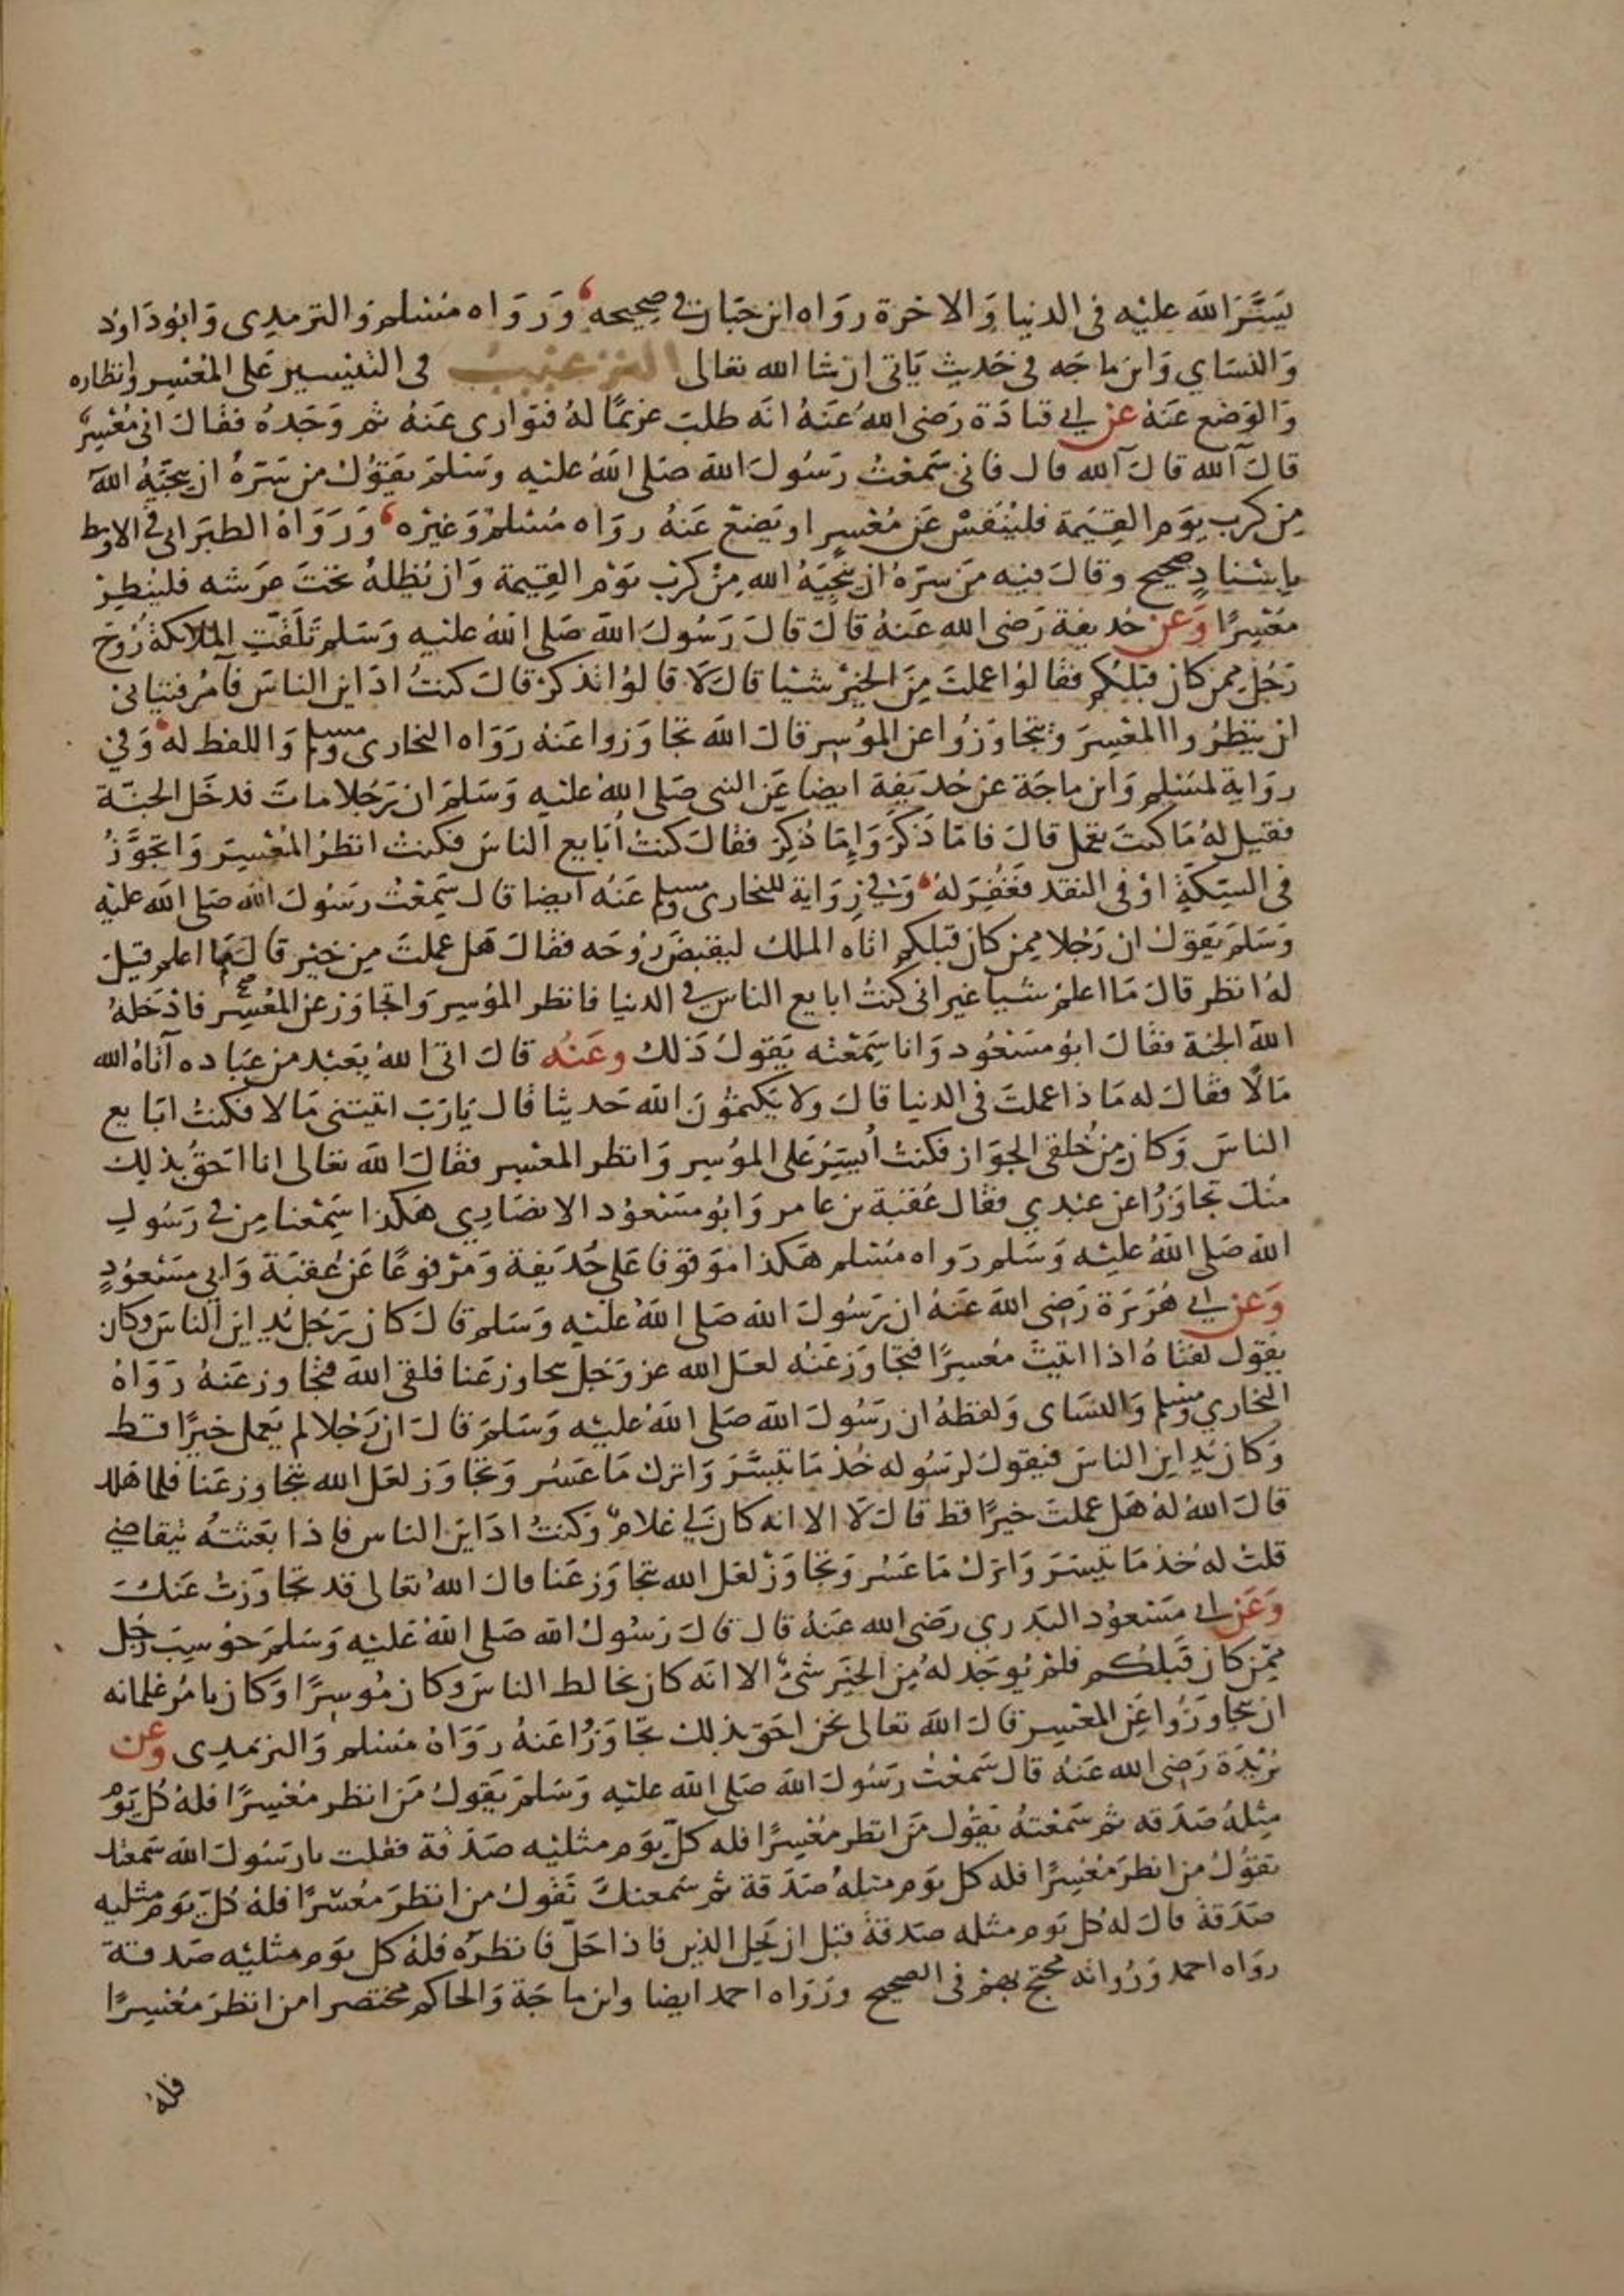 يَسَّرَ الله عليْه فى الدنيا وَالاخرة روَاه ابن حبَان في صحِيحه وَرَوَاه مُسْلم وَالترمدِى وَابُودَاوُد
وَالنسَاي وَابن ماجَه في حَديثٍ يَاتى ان شا الله تعَالى الترغيب فى التيْسير عَلى المُعْسِر وانظاره
وَالوَضع عَنهُ عن ابي قتادَة رَضى اللهُ عَنهُ انَه طلبَ غريمًا لهُ فتوَارى عَنهُ ثم وَجَدهُ فقال انى مُعْسِرٌ
قالَ آلله قالَ آلله قال فانى سَمعْتُ رسُولَ الله صَلى اللهُ عليْه وسَلمَ يقوُلُ من سَرّهُ ان ينجيَهُ اللهُ
مِن كربِ يوَم القِيَمة فليُنَفسْ عَن مُعْسِرٍ او يَضعْ عَنهُ روَاه مُسْلمٌ وَغيْره وَرَوَاهُ الطبَرَانى في الاوسط
باِسْنادٍ صحيحٍ وقالَ فيه مَن سرّهُ ان يُنجِيَهُ الله مِنْ كرْبِ يَوْم القِيمة وَان يُظلهُ تحتَ عرَشه فليُنظِرْ
مُعْسِرًا وَعن حُذيفة رَضى الله عَنهُ قالَ قالَ رَسُولُ الله صَلى اللهُ عليْه وَسَلم تَلَقَّتِ الملَائكةُ رُوحَ
رَجُلٍ ممن كان قبْلكم فقالوُا عملتَ مِنَ الخيْرِ شيْا قالَ لَا قالوُا تذكرْ قالَ كنتُ ادَاين الناسَ فآمُر فتيانى
ان يُنظِرُوا المعْسِرَ ويتجاوَزُوا عن الموُسِر قالَ الله تجاوَزوا عَنهُ رَوَاه البخارى ومسلم وَاللفظ له وَفي
روَايةٍ لمسْلمٍ وَابن ماجَة عن حُذيفة ايضا عَن النبى صَلى اللهُ عليْه وَسَلمَ ان رَجُلا ماتَ فدخَل الجنَّة
فقيل لهُ مَا كنتَ تعْمل قالَ فامّا ذَكَرَ وَاِمّا ذُكِرَ فقالَ كنتُ اُبَايع الناسَ فكنتُ انظرُ المُعْسِرَ وَاتجَوَّزُ
فى السِكَّةِ اوْ فى النقد فغُفِرَ لهُ وَفي رِوَاية للبخارى ومسلم عَنه ايضا قال سَمِعْتُ رسُولَ الله صَلى الله عليْه
وَسَلمَ يَقوُل ان رَجُلا ممن كان قبْلكم اتاه الملك ليقبضَ رُوحَه فقالَ هَل عملتَ مِن خيْر قالَ مَا اعلم قيلَ
لهُ انظر قالَ مَا اعلمُ شيا غير انى كنتُ ابايع الناس في الدنيا فانظر الموُسِر وَاتجاوَز عن المُعْسِر فادْخَلهُ
اللهُ الجنة فقالَ ابوُ مَسْعُود وَانا سَمِعْته يَقوُلُ ذَلك وعَنْه قالَ اتىَ اللهُ بِعَبْد من عِبَاده آتاهُ الله
مَالًا فقالَ له مَاذا عملتَ فى الدنيا قالَ ولا يَكتموُنَ الله حَديثا قال يَارَبّ اتيْتنى مَالا فكنتُ ابَايع
الناسَ وَكان مِن خُلقى الجوَاز فكنتُ أيسِّرُ عَلى الموُسِر وَانظر المعْسِر فقالَ اللهُ تعَالى انا احَقُّ بذلِكَ
منْكَ تجاوَزُا عن عبْدي فقال عُقبَة بن عامر وَابُو مسْعوُد الانصَاري هَكذا سَمِعْنا مِن فى رَسُول
الله صَلى اللهُ عليْه وَسَلم رَواه مُسْلم هَكذا موَقوفا عَلى حُذيْفة وَمَرْفوعًا عَن عُقبَةَ وَابي مسْعُودٍ
وَعن ابي هُرَيرَة رَضى اللهُ عَنهُ ان رَسُولَ الله صَلى اللهُ عليْه وَسَلم قالَ كانَ رَجُل يُداين الناسَ وكان
يقوُل لفتاهُ اذا اتيْتَ مُعْسِرًا فتجاوَز عَنْه لعَل الله عز وَجَل يتجاوز عَنا فلقى اللهَ فتجاوز عَنهُ رَوَاهُ
البخاري ومسْلم وَالنسَاى وَلفظهُ ان رَسُولَ الله صَلى اللهُ عليْه وَسَلمَ قالَ ان رَجْلا لم يَعمل خيرًا قط
وَكان يُداين الناسَ فيَقوُلُ لرَسُوله خُذ مَا تيَسَّرَ وَاترك مَا عَسُر وَتجاوَز لعَل الله يتجاوز عَنا فلما هَلك
قالَ اللهُ لهُ هَل عملتَ خيرًا قط قالَ لَا الا انه كانَ لي غلامٌ وَكنتُ ادَاين الناس فاذا بعَثتهُ يتقاضى
قلتُ لهُ خذ مَا تيسَرَ وَاترك مَا عَسُر وَتجاوَزْ لعَل الله يتجاوَز عَنا قالَ اللهُ تعَالى قد تجاوَزتُ عَنكَ
وَعَن ابى مَسْعوُد البَدري رَضى الله عَنهُ قال قالَ رَسُولُ الله صَلى اللهُ عَليْه وَسَلمَ حوُسِبَ رَجُل
مِمّن كانَ قَبلكُم فلمْ يوُجَد لهُ مِن الخيَر شىْء الا انَه كان يخالط الناسَ وكانَ مُوسِرًا وَكان يامُر غلمانه
ان يتجاوَزُوا عَن المعْسِر قالَ الله تعَالى نحن احَق بذلك تجَاوَزُا عَنهُ رَوَاهُ مُسْلم وَالترمدِى وعن
بُرَيْدَة رَضى الله عَنهُ قال سَمعْتُ رسُولَ الله صَلى الله عليْه وَسَلمَ يَقوُلُ مَن انظر مُعْسِرًا فلهُ كُل يَوْم
مِثلهُ صَدَقه ثم سَمعْتهُ يَقوُل مَن انظر مُعْسِرًا فله كلّ يوَم مثليْه صَدَقة فقلت يا رسُولَ الله سَمعتك
تقوُلُ من انظرَ مُعْسِرًا فله كل يوَم مثلهُ صَدَقة ثم سَمعتكَ تَقوُلُ من انظرَ مُعْسْرًا فلهُ كُلّ يَوم مثليه
صَدَقة قالَ لهُ كل يَوم مثله صدقةٌ قبْل ان يَحِل الدين فاذا حَلّ فانظرَهُ فلهُ كل يوَم مثليْه صَدقة
روَاه احمد وَرُواته محتج بهمْ فى الصحيح ورَوَاه احمد ايضا وابن ماجَة وَالحاكم مختصرا من انظرَ مُعْسِرًا
فلهُ